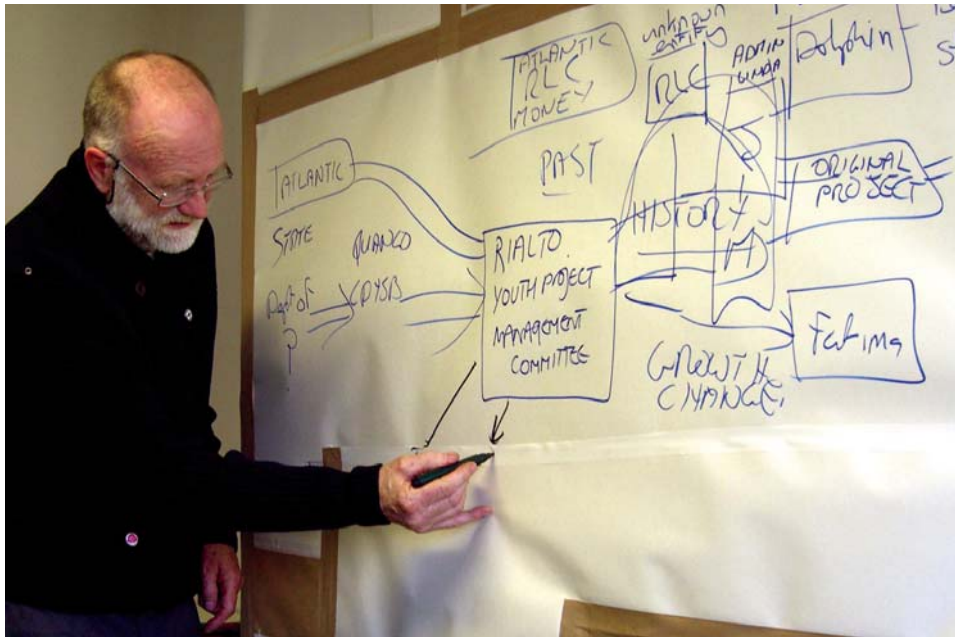 ATLANTIC
RLC
MONEY
unknown
entity
RLC
ADMIN
LINDA
Dolphin
PAST
ATLANTIC
ORIGINAL
PROJECT
HISTORY
STATE
QUANGO
Dept of
?
CDYSB
RIALTO
YOUTH PROJECT
MANAGEMENT
COMMITTEE
Fatima
GROWTH
CHANGE,